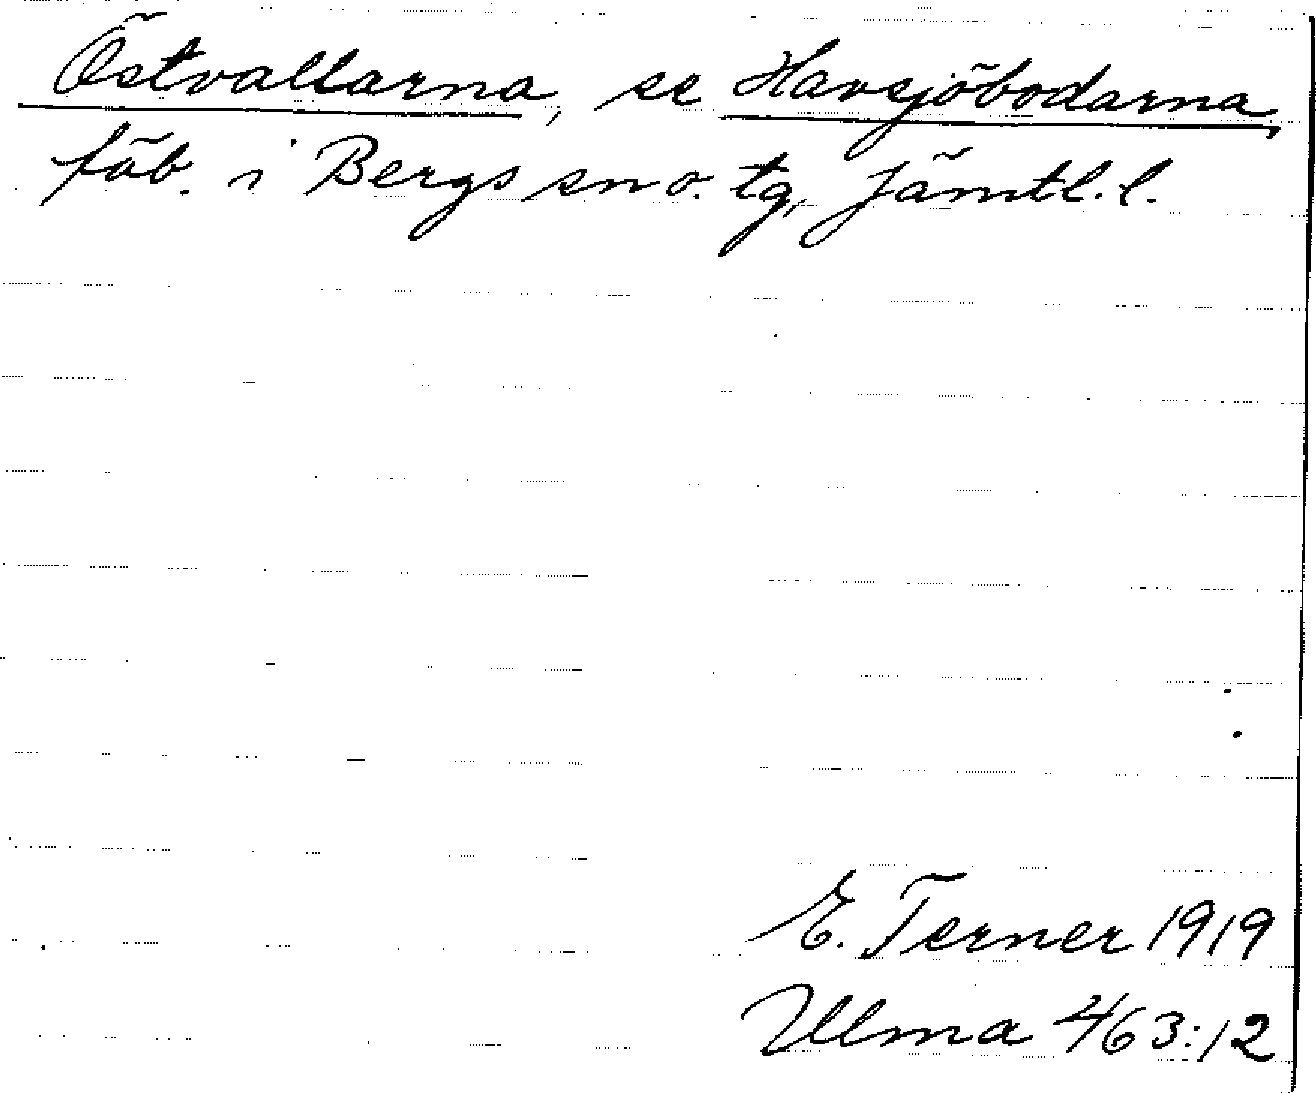 Östvallarna, se Havsjöbodarna,
fäb. i Bergs sn o. tg, Jämtl. l.
E. Terner 1919
Ulma 463:12